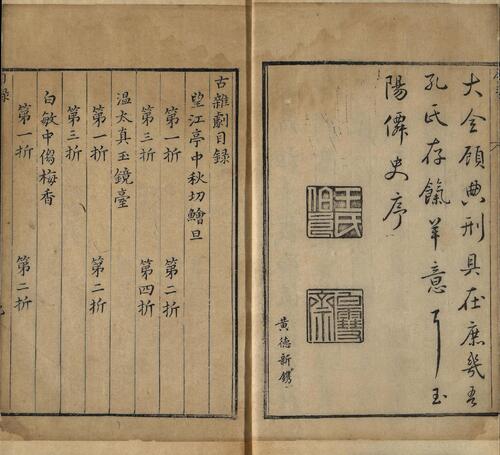 大全頋典刑具在庶幾吾
孔氏存餼羊意耳玉
陽僊史序
王氏伯良
白雪齋
黃德新鐫
古雜劇目錄
望江亭中秋切鱠旦
第一折 第二折
第三折 第四折
溫太真玉鏡臺
第一折 第二折
第三折
白敏中㑳梅香
第一折 第二折
目錄